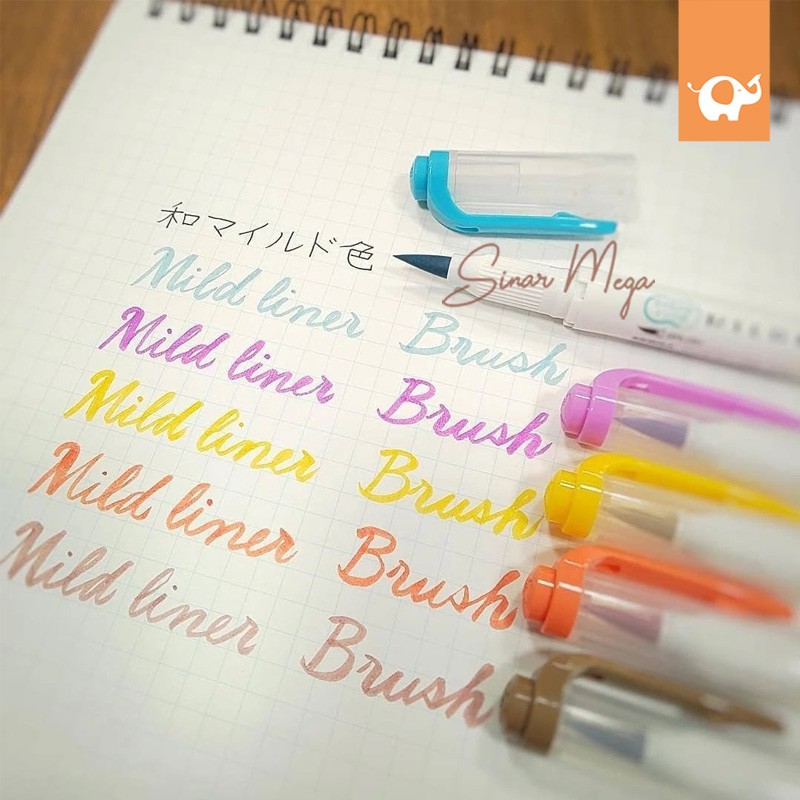 和マイルド色
Sinar Mega
Mild liner Brush
Mild liner Brush
Mild liner Brush
Mild liner Brush
Mild liner Brush